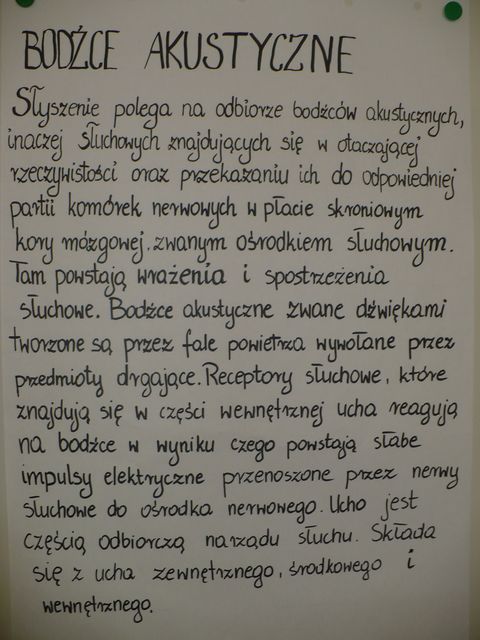 BODŹCE AKUSTYCZNE
Słyszenie polega na odbiorze bodźców akustycznych,
inaczej słuchowych znajdujących się w otaczającej
rzeczywistości oraz przekazaniu ich do odpowiedniej
partii komórek nerwowych w płacie skroniowym
kory mózgowej, zwanym ośrodkiem słuchowym.
Tam powstają wrażenia i spostrzeżenia
słuchowe. Bodźce akustyczne zwane dźwiękami
tworzone są przez fale powietrza wywołane przez
przedmioty drgające. Receptory słuchowe, które
znajdują się w części wewnętrznej ucha reagują
na bodźce w wyniku czego powstają słabe
impulsy elektryczne przenoszone przez nerwy
słuchowe do ośrodka nerwowego. Ucho jest
częścią odbiorczą narządu słuchu. Składa
się z ucha zewnętrznego, środkowego i
wewnętrznego.